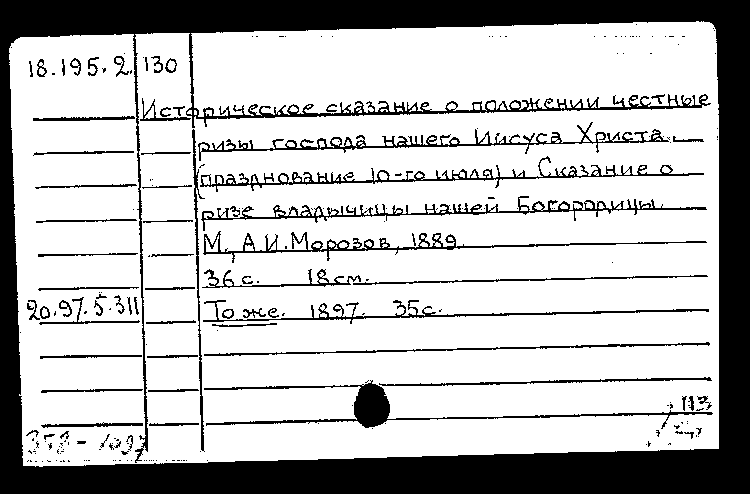 18.195.2 130
Историческое сказание о положении честные
ризы господа нашего Иисуса Христа.
(празднование 10-го июля) и Сказание о
ризе владычицы нашей Богородицы.
М., А.И.Морозов, 1889.
36 с. 18 см.
20.97.5.311 То же. 1897. 35 с.
113